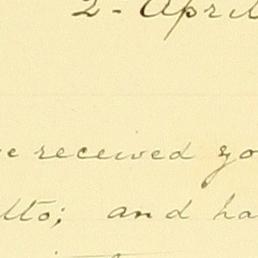 2 - April
received yo
and ha